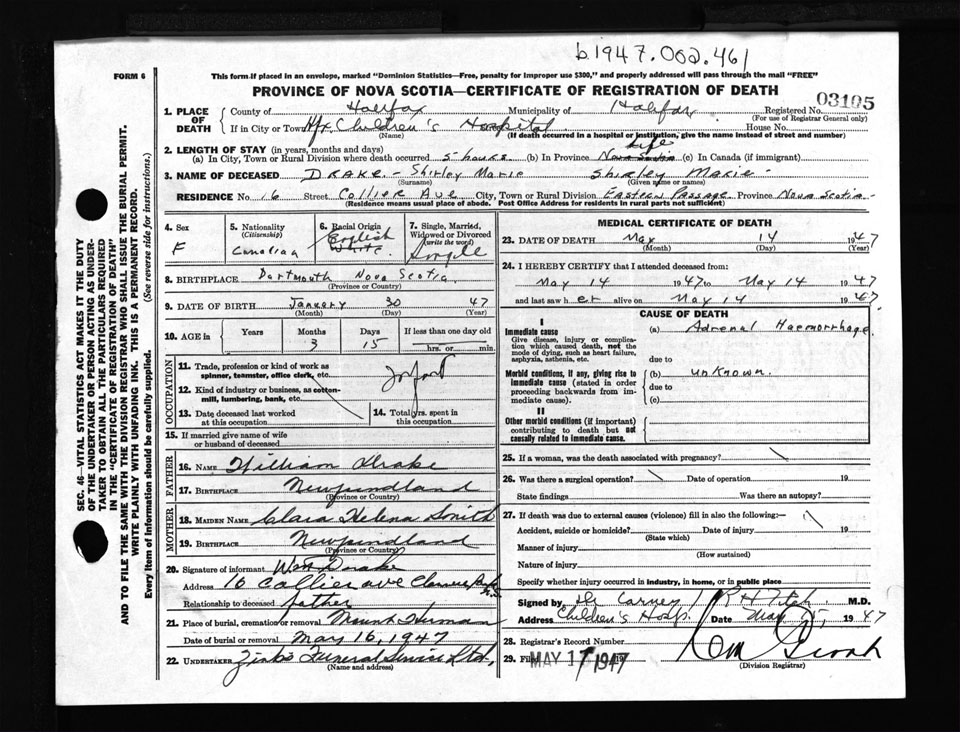 b.1947.002.461
FORM 6
This form if placed in an envelope, marked "Dominion Statistics—Free, penalty for improper use $300," and properly addressed will pass through the mail "FREE"
PROVINCE OF NOVA SCOTIA—CERTIFICATE OF REGISTRATION OF DEATH
03105
1. PLACE OF DEATH
County of Halifax Municipality of Halifax Registered No.
(For use of Registrar General only)
If in City or Town Hfx. Children's Hospital House No.
(Name) (If death occurred in a hospital or institution, give the name instead of street and number)
2. LENGTH OF STAY (in years, months and days)
Life
(a) In City, Town or Rural Division where death occurred 5 hours. (b) In Province Nova Scotia (c) In Canada (if immigrant)
3. NAME OF DECEASED DRAKE - Shirley Marie Shirley Marie -
(Surname) (Given name or names)
RESIDENCE No. 16 Street Collier Ave City, Town or Rural Division Eastern Passage Province Nova Scotia.
(Residence means usual place of abode. Post Office Address for residents in rural parts not sufficient)
4. Sex
F
5. Nationality
(Citizenship)
Canadian
6. Racial Origin
English
White
7. Single, Married, Widowed or Divorced
(write the word)
Single
8. BIRTHPLACE Dartmouth Nova Scotia.
(Province or Country)
9. DATE OF BIRTH January 30 47
(Month) (Day) (Year)
10. AGE in Years Months Days If less than one day old
3 15 hrs. or min.
OCCUPATION
11. Trade, profession or kind of work as spinner, teamster, office clerk, etc. Infant
12. Kind of industry or business, as cotton-mill, lumbering, bank, etc.
13. Date deceased last worked at this occupation
14. Total yrs. spent in this occupation
15. If married give name of wife or husband of deceased
FATHER
16. NAME William Drake
17. BIRTHPLACE Newfundland
(Province or Country)
MOTHER
18. MAIDEN NAME Clara Helena Smith
19. BIRTHPLACE Newfoundland
(Province or Country)
20. Signature of informant Wm Drake
Address 16 Collier ave Clarence Park N.S.
Relationship to deceased father
21. Place of burial, cremation or removal Mount Herman
Date of burial or removal May 16, 1947
22. UNDERTAKER Zink's Funeral Service Ltd.,
(Name and address)
MEDICAL CERTIFICATE OF DEATH
23. DATE OF DEATH May 14 1947
(Month) (Day) (Year)
24. I HEREBY CERTIFY that I attended deceased from:
May 14 1947 to May 14 1947
and last saw her alive on May 14 1947
CAUSE OF DEATH
I
Immediate cause
Give disease, injury or complication which caused death, not the mode of dying, such as heart failure, asphyxia, asthenia, etc.
(a) Adrenal Haemorrhage.
due to
Morbid conditions, if any, giving rise to immediate cause (stated in order proceeding backwards from immediate cause).
(b) unknown.
due to
(c)
II
Other morbid conditions (if important) contributing to death but not causally related to immediate cause.
25. If a woman, was the death associated with pregnancy?
26. Was there a surgical operation? Date of operation 19
State findings Was there an autopsy?
27. If death was due to external causes (violence) fill in also the following:—
Accident, suicide or homicide? Date of injury 19
(State which)
Manner of injury
(How sustained)
Nature of injury
Specify whether injury occurred in industry, in home, or in public place
Signed by Dr Carney / M.D.
Address Children's Hosp. Date May 15, 1947
28. Registrar's Record Number
29. Filed MAY 17 1947 19
(Division Registrar)
SEC. 46—VITAL STATISTICS ACT MAKES IT THE DUTY
OF THE UNDERTAKER OR PERSON ACTING AS UNDER-
TAKER TO OBTAIN ALL THE PARTICULARS REQUIRED
IN THE "CERTIFICATE OF REGISTRATION OF DEATH"
AND TO FILE THE SAME WITH THE DIVISION REGISTRAR WHO SHALL ISSUE THE BURIAL PERMIT.
WRITE PLAINLY WITH UNFADING INK. THIS IS A PERMANENT RECORD.
Every item of information should be carefully supplied. (See reverse side for instructions.)